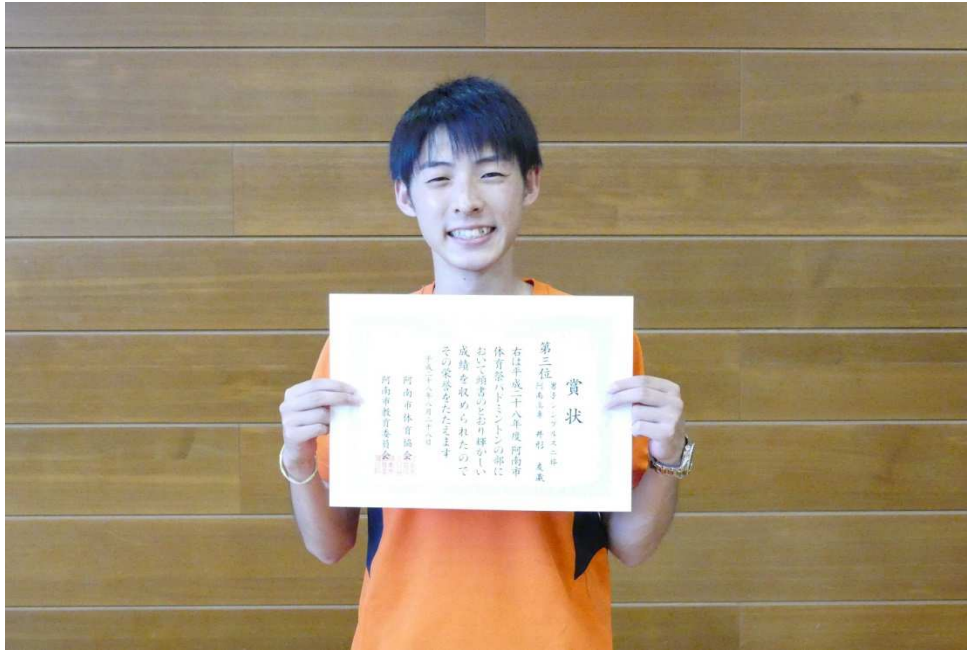 賞状
第三位
男子シングルス二部
阿南高専
右は平成二十八年度阿南市
体育祭バドミントンの部に
おいて頭書のとおり輝かしい
成績を収められたので
その栄誉をたたえます
平成二十八年八月二十八日
阿南市体育協会
阿南市教育委員会